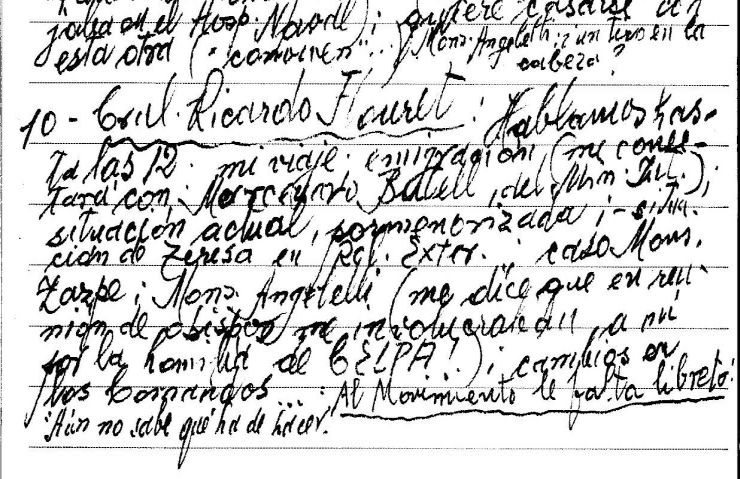 en el Hosp. Naval); quiere casarse con
esta otra ("conviven"... Mons. Angelelli ¿un tiro en la
cabeza?
10 - Gral. Ricardo Flouret: Hablamos has-
ta las 12: mi viaje: emigración (me conec-
tará con Marcelino Batell, del Min. Int.);
situación actual, pormenorizada; - situa
ción de Teresa en Rel. Exter. : caso Mons.
Zazpe; Mons. Angelelli (me dice que en reu-
nión de obispos me involucraron a mí
por la homilía de CELPA!); cambios en
los Comandos...: Al Movimiento le falta libreto:
¡Aún no sabe qué ha de hacer.